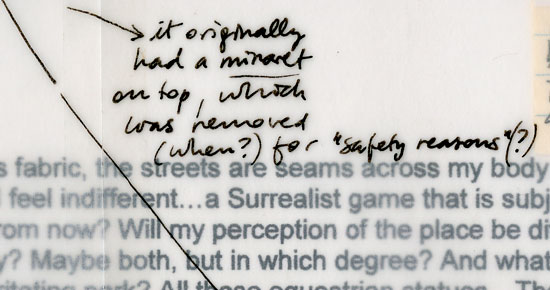 it originally
had a minaret
on top, which
was removed
(when?) for "safety reasons" (?)
s fabric, the streets are seams across my body
feel indifferent...a Surrealist game that is subj
rom now? Will my perception of the place be di
y? Maybe both, but in which degree? And what
itating park? All those equestrian statues... Th